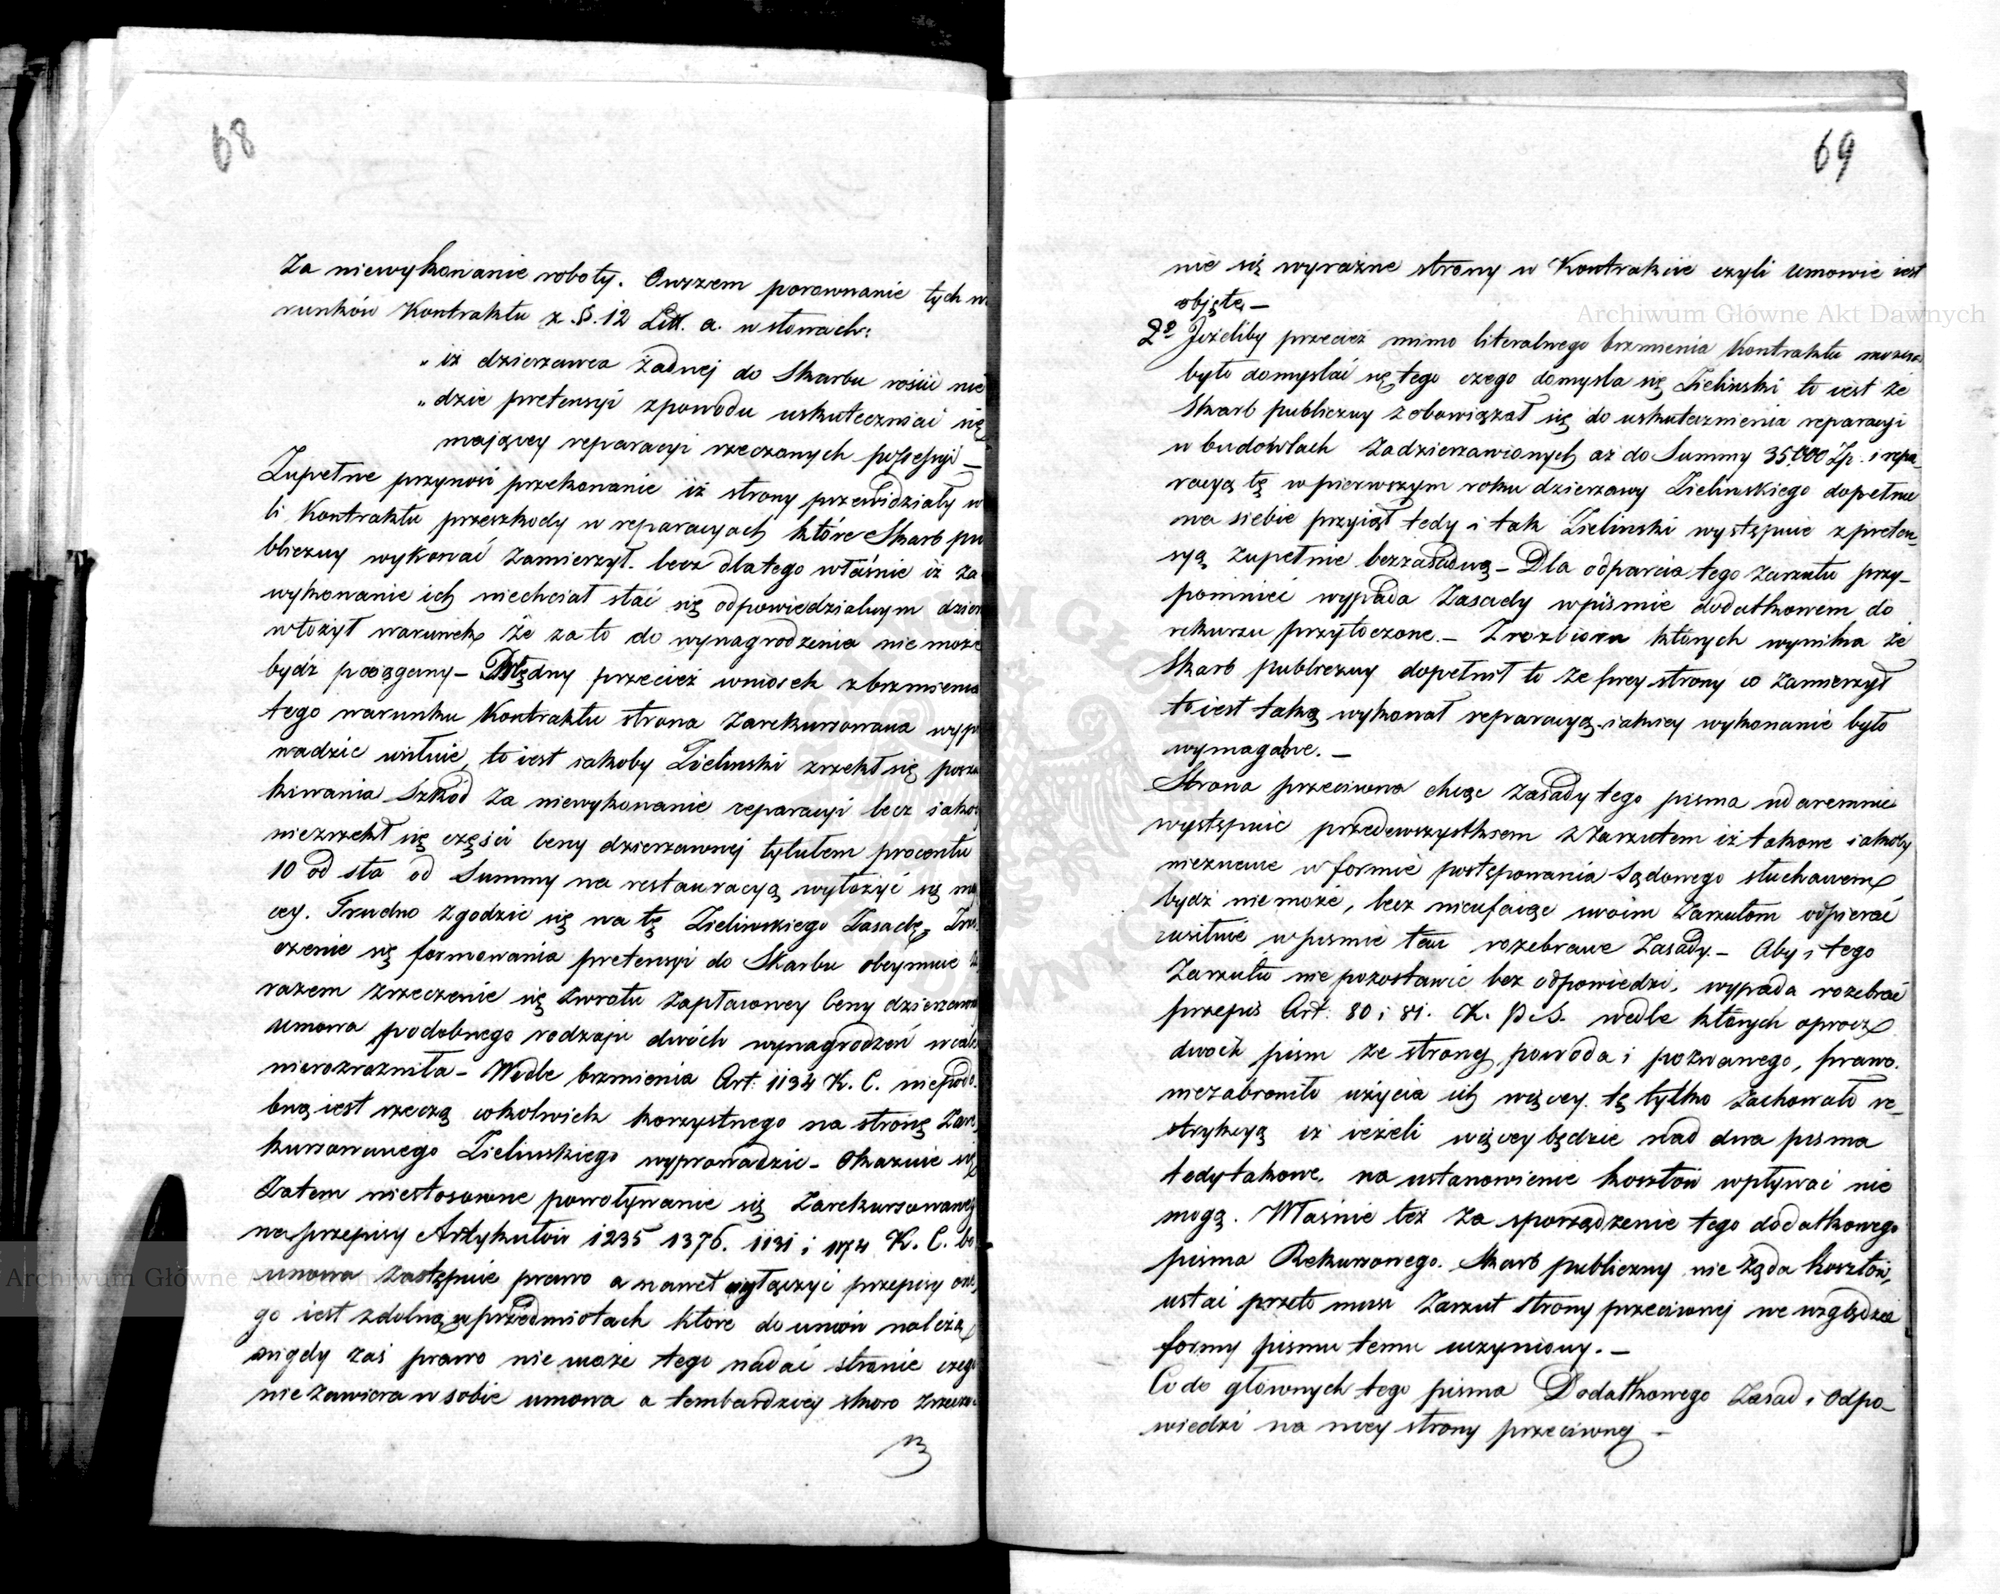 68
Za niewykonanie roboty. Owszem porownanie tych w
runków Kontraktu z §. 12 Litt. a. w słowach:
„ iż dzierzawca Żadnej do Skarbu rościć nie
„ dzie pretensyi z powodu uskuteczniać się
maiącey reparacyi rzeczonych possessyi —
Zupełne przynosi przekonanie iż strony przewidziały w
li Kontraktu przeszkody w reparacyach które Skarb pu
bliczny wykonać Zamierzył. lecz dlatego właśnie iż za
wykonanie ich niechciał stać się odpowiedzialnym dzier
włożył warunek że za to do wynagrodzenia nie może
bydź pociągany — Błędny przecież wniosek z brzmienia
tego warunku Kontraktu strona Zarekursowana wyp
wadzić usiłuie, to iest iakoby Zielinski zrzekł się posz
kiwania Szkód Za niewykonanie reparacyi lecz iakob
niezrzekł się części Ceny dzierzawnej tytułem procentu
10 od sta od Summy na restauracyą wyłożyć się ma
cey. Trudno Zgodzić się na tę Zielinskiego Zasadę, Zrze
czenie się formowania pretensyi do Skarbu obeymuie
razem Zrzeczenie się Zwrotu Zapłaconey Ceny dzierzawn
Umowa podobnego rodzaju dwóch wynagrodzeń wcale
nierozrózniła — Wedle brzmienia Art: 1134 K. C. niepodo
bną iest rzeczą cokolwiek korzystnego na stronę Zare
kursowanego Zielinskiego wyprowadzić — Okazuie się
Zatem niestosowne powoływanie się Zarekursowanej
na przepisy Artykułów 1235 1376. 1131 i 1174 K. C. bo
umowa Zastępuie prawo a nawet wyłączyć przepisy one
go iest zdolną w przedmiotach które do umów należą
nigdy zaś prawo nie może tego nadać stronie czego
nie Zawiera w sobie umowa a tembardziey skoro Zrzecze
69
nie się wyraźne strony w Kontrakcie czyli Umowie iest
objęte —
2º Jeżeliby przecież mimo literalnego brzmienia Kontraktu można
było domyślać się tego czego domyśla się Zielinski to iest że
Skarb publiczny Zobowiązał się do uskutecznienia reparacyi
w budowlach Zadzierzawionych aż do Summy 35,000 Zp. i repa-
racyą tę w pierwszym roku dzierzawy Zielinskiego dopełnić
na siebie przyiął tedy i tak Zielinski występuie z preten-
syą Zupełnie bezzasadną — Dla odparcia tego Zarzutu przy-
pomnieć wypada Zasady w piśmie dodatkowem do
rekursu przytoczone. — Z rozbioru których wynika że
Skarb publiczny dopełnił to ze swey strony co Zamierzył
to iest taką wykonał reparacyą iakiey wykonanie było
wymagalne. —
Strona przeciwna chcąc Zasady tego pisma udaremnić
występuie przedewszystkiem z Zarzutem iż takowe iakoby
nieznane w formie postępowania Sądowego słuchanem
bydź nie może, lecz nieufaiąc swoim Zarzutom odpierać
usiłuie w piśmie tem rozebrane Zasady. — Aby i tego
Zarzutu nie pozostawić bez odpowiedzi, wypada rozebrać
przepis Art: 80 i 81. K. P. S. wedle których oprócz
dwóch pism ze strony powoda i pozwanego, prawo
niezabroniło użycia ich więcey. tę tylko Zachowało re-
strykcyą iż ieżeli więcey będzie nad dwa pisma
tedy takowe, na ustanowienie kosztów wpływać nie
mogą. Właśnie też Za sporządzenie tego dodatkowego
pisma Rekursowego. Skarb publiczny nie żąda kosztów,
ustać przeto musi Zarzut strony przeciwnej we względzie
formy pismu temu uczyniony. —
Co do głównych tego pisma Dodatkowego Zasad i Odpo-
wiedzi na niey strony przeciwnej —